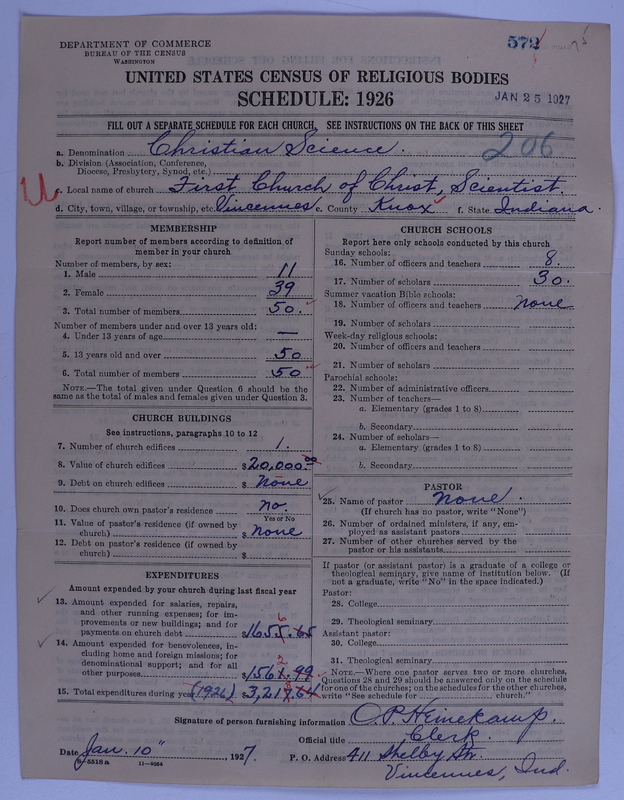 DEPARTMENT OF COMMERCE
BUREAU OF THE CENSUS
WASHINGTON
572
75
UNITED STATES CENSUS OF RELIGIOUS BODIES
SCHEDULE: 1926
JAN 25 1927
FILL OUT A SEPARATE SCHEDULE FOR EACH CHURCH. SEE INSTRUCTIONS ON THE BACK OF THIS SHEET
206
a. Denomination Christian Science.
b. Division (Association, Conference,
Diocese, Presbytery, Synod, etc.)
U
c. Local name of church First Church of Christ, Scientist.
d. City, town, village, or township, etc. Vincennes e. County Knox f. State Indiana.
MEMBERSHIP
Report number of members according to definition of
member in your church
Number of members, by sex:
1. Male 11
2. Female 39
3. Total number of members 50.
Number of members under and over 13 years old:
4. Under 13 years of age —
5. 13 years old and over 50
6. Total number of members 50
NOTE.—The total given under Question 6 should be the
same as the total of males and females given under Question 3.
CHURCH BUILDINGS
See instructions, paragraphs 10 to 12
7. Number of church edifices 1.
8. Value of church edifices $20,000.00
9. Debt on church edifices $ None
10. Does church own pastor's residence no.
Yes or No
11. Value of pastor's residence (if owned by
church) $ none
12. Debt on pastor's residence (if owned by
church) $
EXPENDITURES
Amount expended by your church during last fiscal year
13. Amount expended for salaries, repairs,
and other running expenses; for im-
provements or new buildings; and for
payments on church debt $1655.65
6
14. Amount expended for benevolences, in-
cluding home and foreign missions; for
denominational support; and for all
other purposes $1561.99
15. Total expenditures during year (1926) $3,217.64
CHURCH SCHOOLS
Report here only schools conducted by this church
Sunday schools:
16. Number of officers and teachers 8.
17. Number of scholars 30.
Summer vacation Bible schools:
18. Number of officers and teachers none
19. Number of scholars
Week-day religious schools:
20. Number of officers and teachers
21. Number of scholars
Parochial schools:
22. Number of administrative officers
23. Number of teachers—
a. Elementary (grades 1 to 8)
b. Secondary
24. Number of scholars—
a. Elementary (grades 1 to 8)
b. Secondary
PASTOR
25. Name of pastor None.
(If church has no pastor, write "None")
26. Number of ordained ministers, if any, em-
ployed as assistant pastors
27. Number of other churches served by the
pastor or his assistants
If pastor (or assistant pastor) is a graduate of a college or
theological seminary, give name of institution below. (If
not a graduate, write "No" in the space indicated.)
Pastor:
28. College
29. Theological seminary
Assistant pastor:
30. College
31. Theological seminary
NOTE.—Where one pastor serves two or more churches,
Questions 28 and 29 should be answered only on the schedule
for one of the churches; on the schedules for the other churches,
write "See schedule for church."
Signature of person furnishing information O. P. Heinekamp.
Official title Clerk.
Date Jan. 10" , 1927.
P. O. Address 411 Shelby Str.
8-5518a 11-9264
Vincennes, Ind.